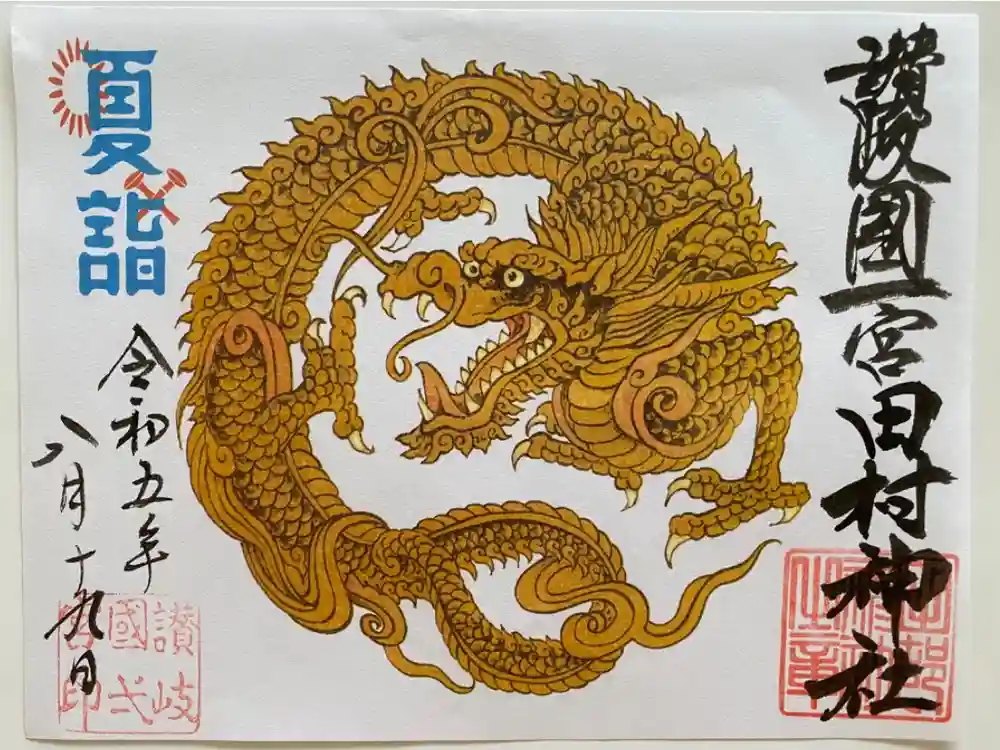 讚岐國一宮田村神社
夏詣
令和五年
八月十九日
讃岐
國弌
宮印